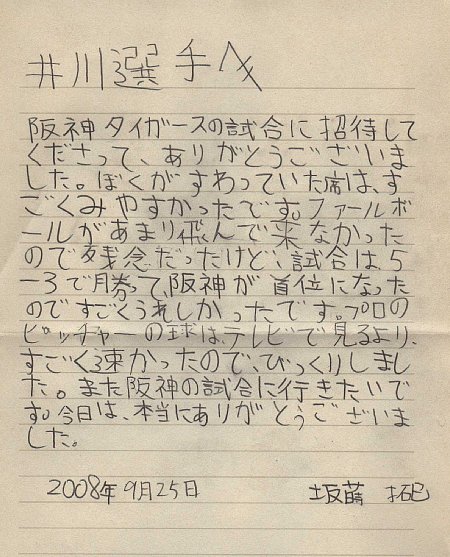 井川選手へ
阪神タイガースの試合に招待して
くださって、ありがとうございま
した。ぼくがすわっていた席は、す
ごくみやすかったです。ファールボ
ールがあまり飛んで来なかった
ので残念だったけど、試合は5
-3で勝って、阪神が首位になった
のですごくうれしかったです。プロの
ピッチャーの球は、テレビで見るより、
すごく速かったので、びっくりしまし
た。また阪神の試合に行きたいで
す。今日は、本当にありがとうございま
した。
2008年9月25日 坂 拓巳